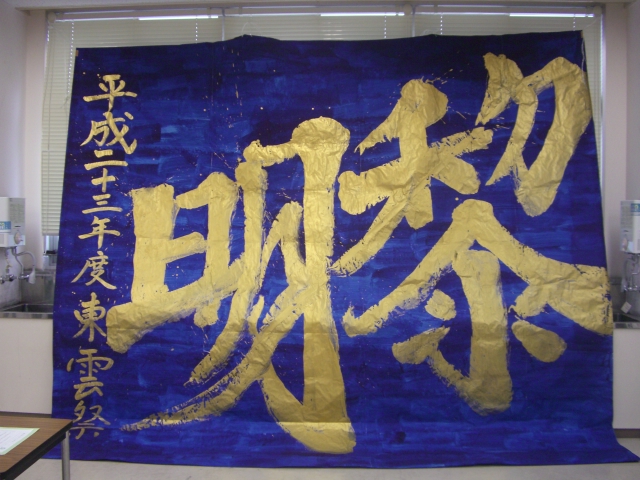 黎明
平成二十三年度東雲祭